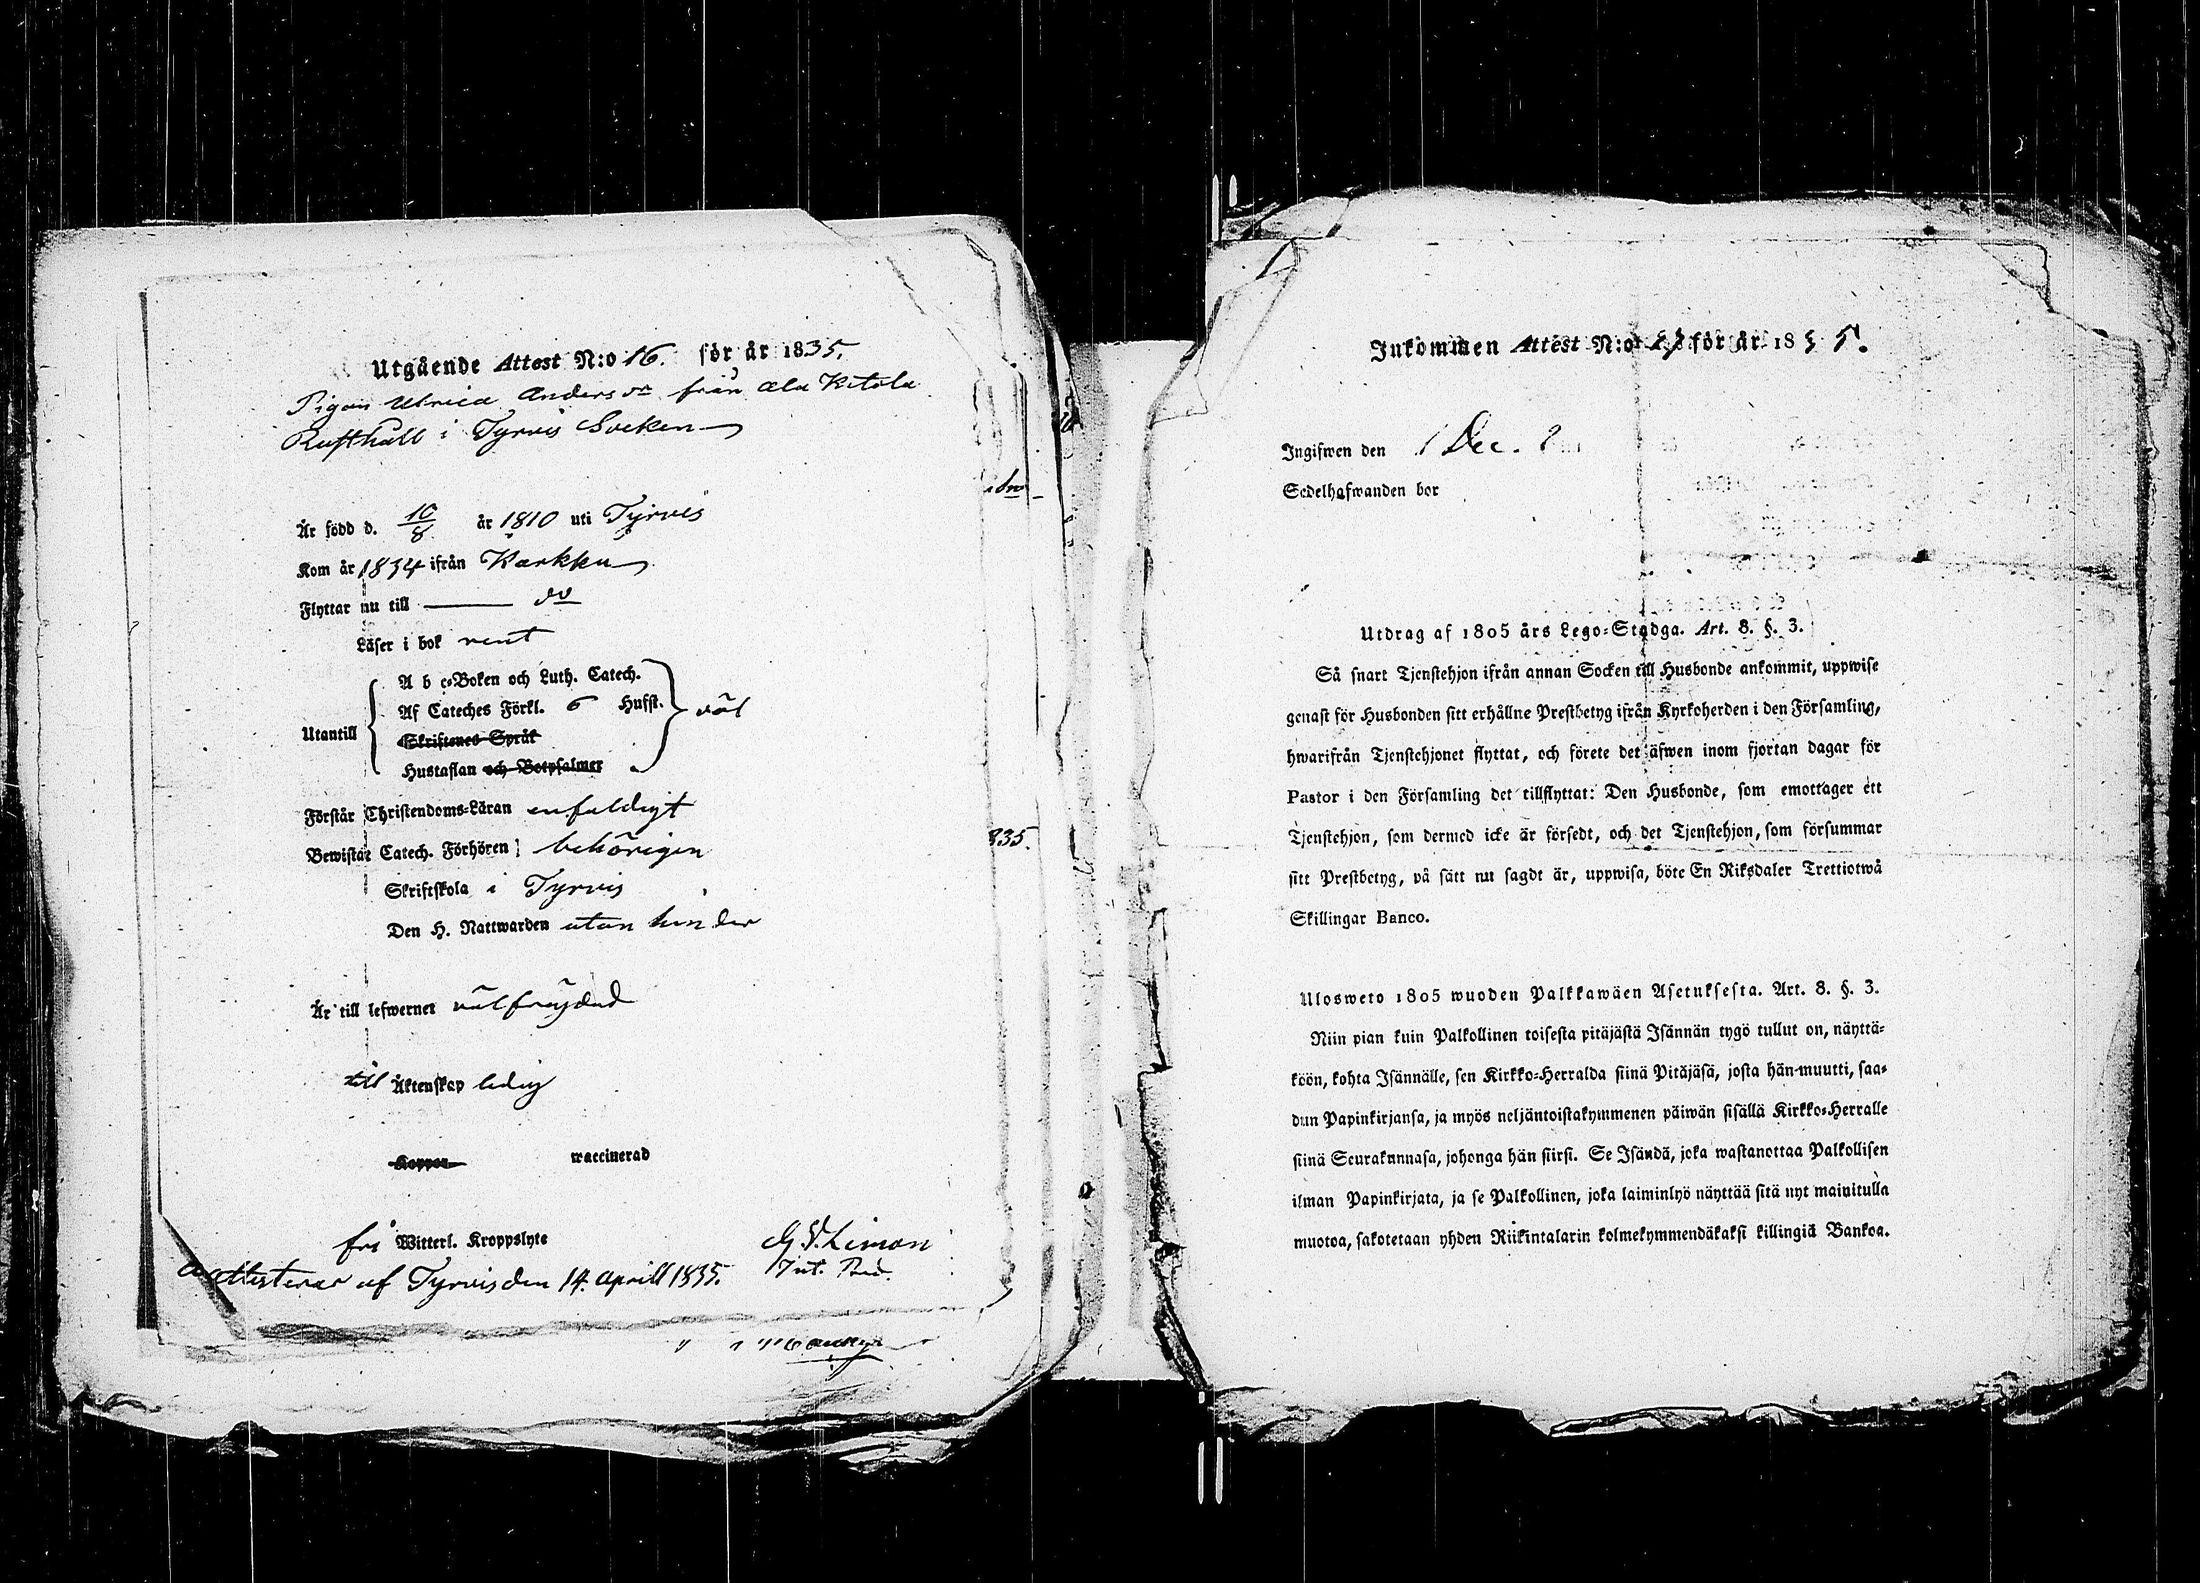 Utgående Attest N:o 16. för år 1835.
Pigan Ulrica Andersdr från Ala Kitola
Rusthåll i Tyrvis Socken
Är född d. 10/8 år 1810 uti Tyrvis
Kom år 1834 ifrån Karkku
Flyttar nu till do
Läser i bok rent
Utantill
A b c-Boken och Luth. Catech.
Af Cateches Förkl. 6 Hufst. väl
Skriftenes Språk
Hustaflan och Botpsalmer
Förstår Christendoms-Läran enfaldigt
Bewistat Catech. Förhören behörigen
Skriftskola i Tyrvis
Den H. Nattwarden utan hinder
Är till lefwernet välfrejdad
till Äktenskap ledig
Koppor waccinerad
fri Witterl. Kroppslyte
Attesterar af Tyrvis den 14. Aprill 1835.
835.
Inkommen Attest N:o för år 1835.
Ingifwen den 1 Dec.
Sedelhafwanden bor
Utdrag af 1805 års Lego-Stadga. Art. 8. §. 3.
Så snart Tjenstehjon ifrån annan Socken till Husbonde ankommit, uppwise
genast för Husbonden sitt erhållne Prestbetyg ifrån Kyrkoherden i den Församling,
hwarifrån Tjenstehjonet flyttat, och förete det äfwen inom fjortan dagar för
Pastor i den Församling det tillflyttat: Den Husbonde, som emottager ett
Tjenstehjon, som dermed icke är försedt, och det Tjenstehjon, som försummar
sitt Prestbetyg, på sätt nu sagdt är, uppwisa, böte En Riksdaler Trettiotwå
Skillingar Banco.
Ulosweto 1805 wuoden Palkkawäen Asetuksesta. Art. 8. §. 3.
Niin pian kuin Palkollinen toisesta pitäjästä Isännän tygö tullut on, näyttä-
köön, kohta Isännälle, sen Kirkko-Herralda siinä Pitäjäsä, josta hän muutti, saa-
dun Papinkirjansa, ja myös neljäntoistakymmenen päiwän sisällä Kirkko-Herralle
siinä Seurakunnasa, johonga hän siirsi. Se Isändä, joka wastanottaa Palkollisen
ilman Papinkirjata, ja se Palkollinen, joka laiminlyö näyttää sitä nyt mainitulla
muotoa, sakotetaan yhden Riikintalarin kolmekymmendäkaksi killingiä Bankoa.